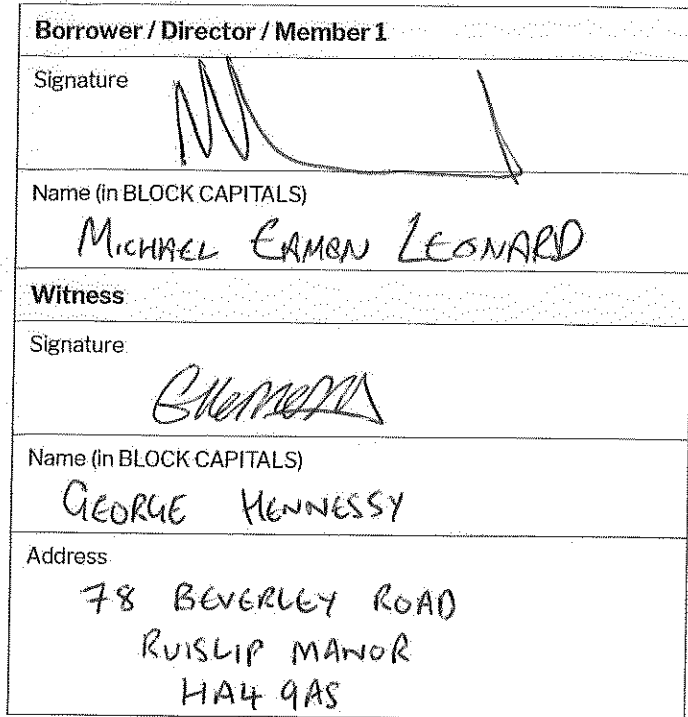 Borrower / Director / Member 1
Signature
Name (in BLOCK CAPITALS)
MICHAEL EAMON LEONARD
Witness
Signature
Name (in BLOCK CAPITALS)
GEORGE HENNESSY
Address
78 BEVERLEY ROAD
RUISLIP MANOR
HA4 9AS